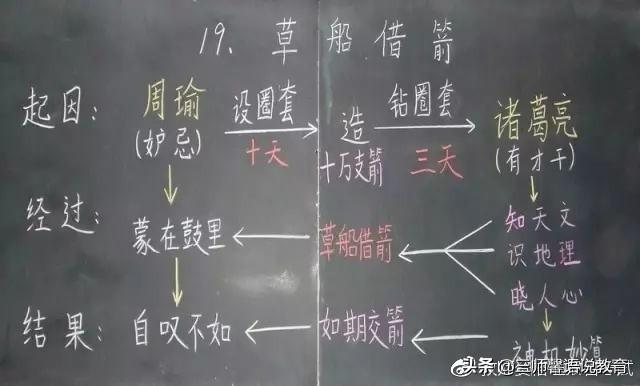 19、草船借箭
起因： 周瑜 设圈套 造 钻圈套 诸葛亮
(妒忌) 十天 十万支箭 三天 (有才干)
经过： 蒙在鼓里 草船借箭 知天文
识地理
晓人心
结果： 自叹不如 如期交箭 神机妙算
头条@三师馨语说教育